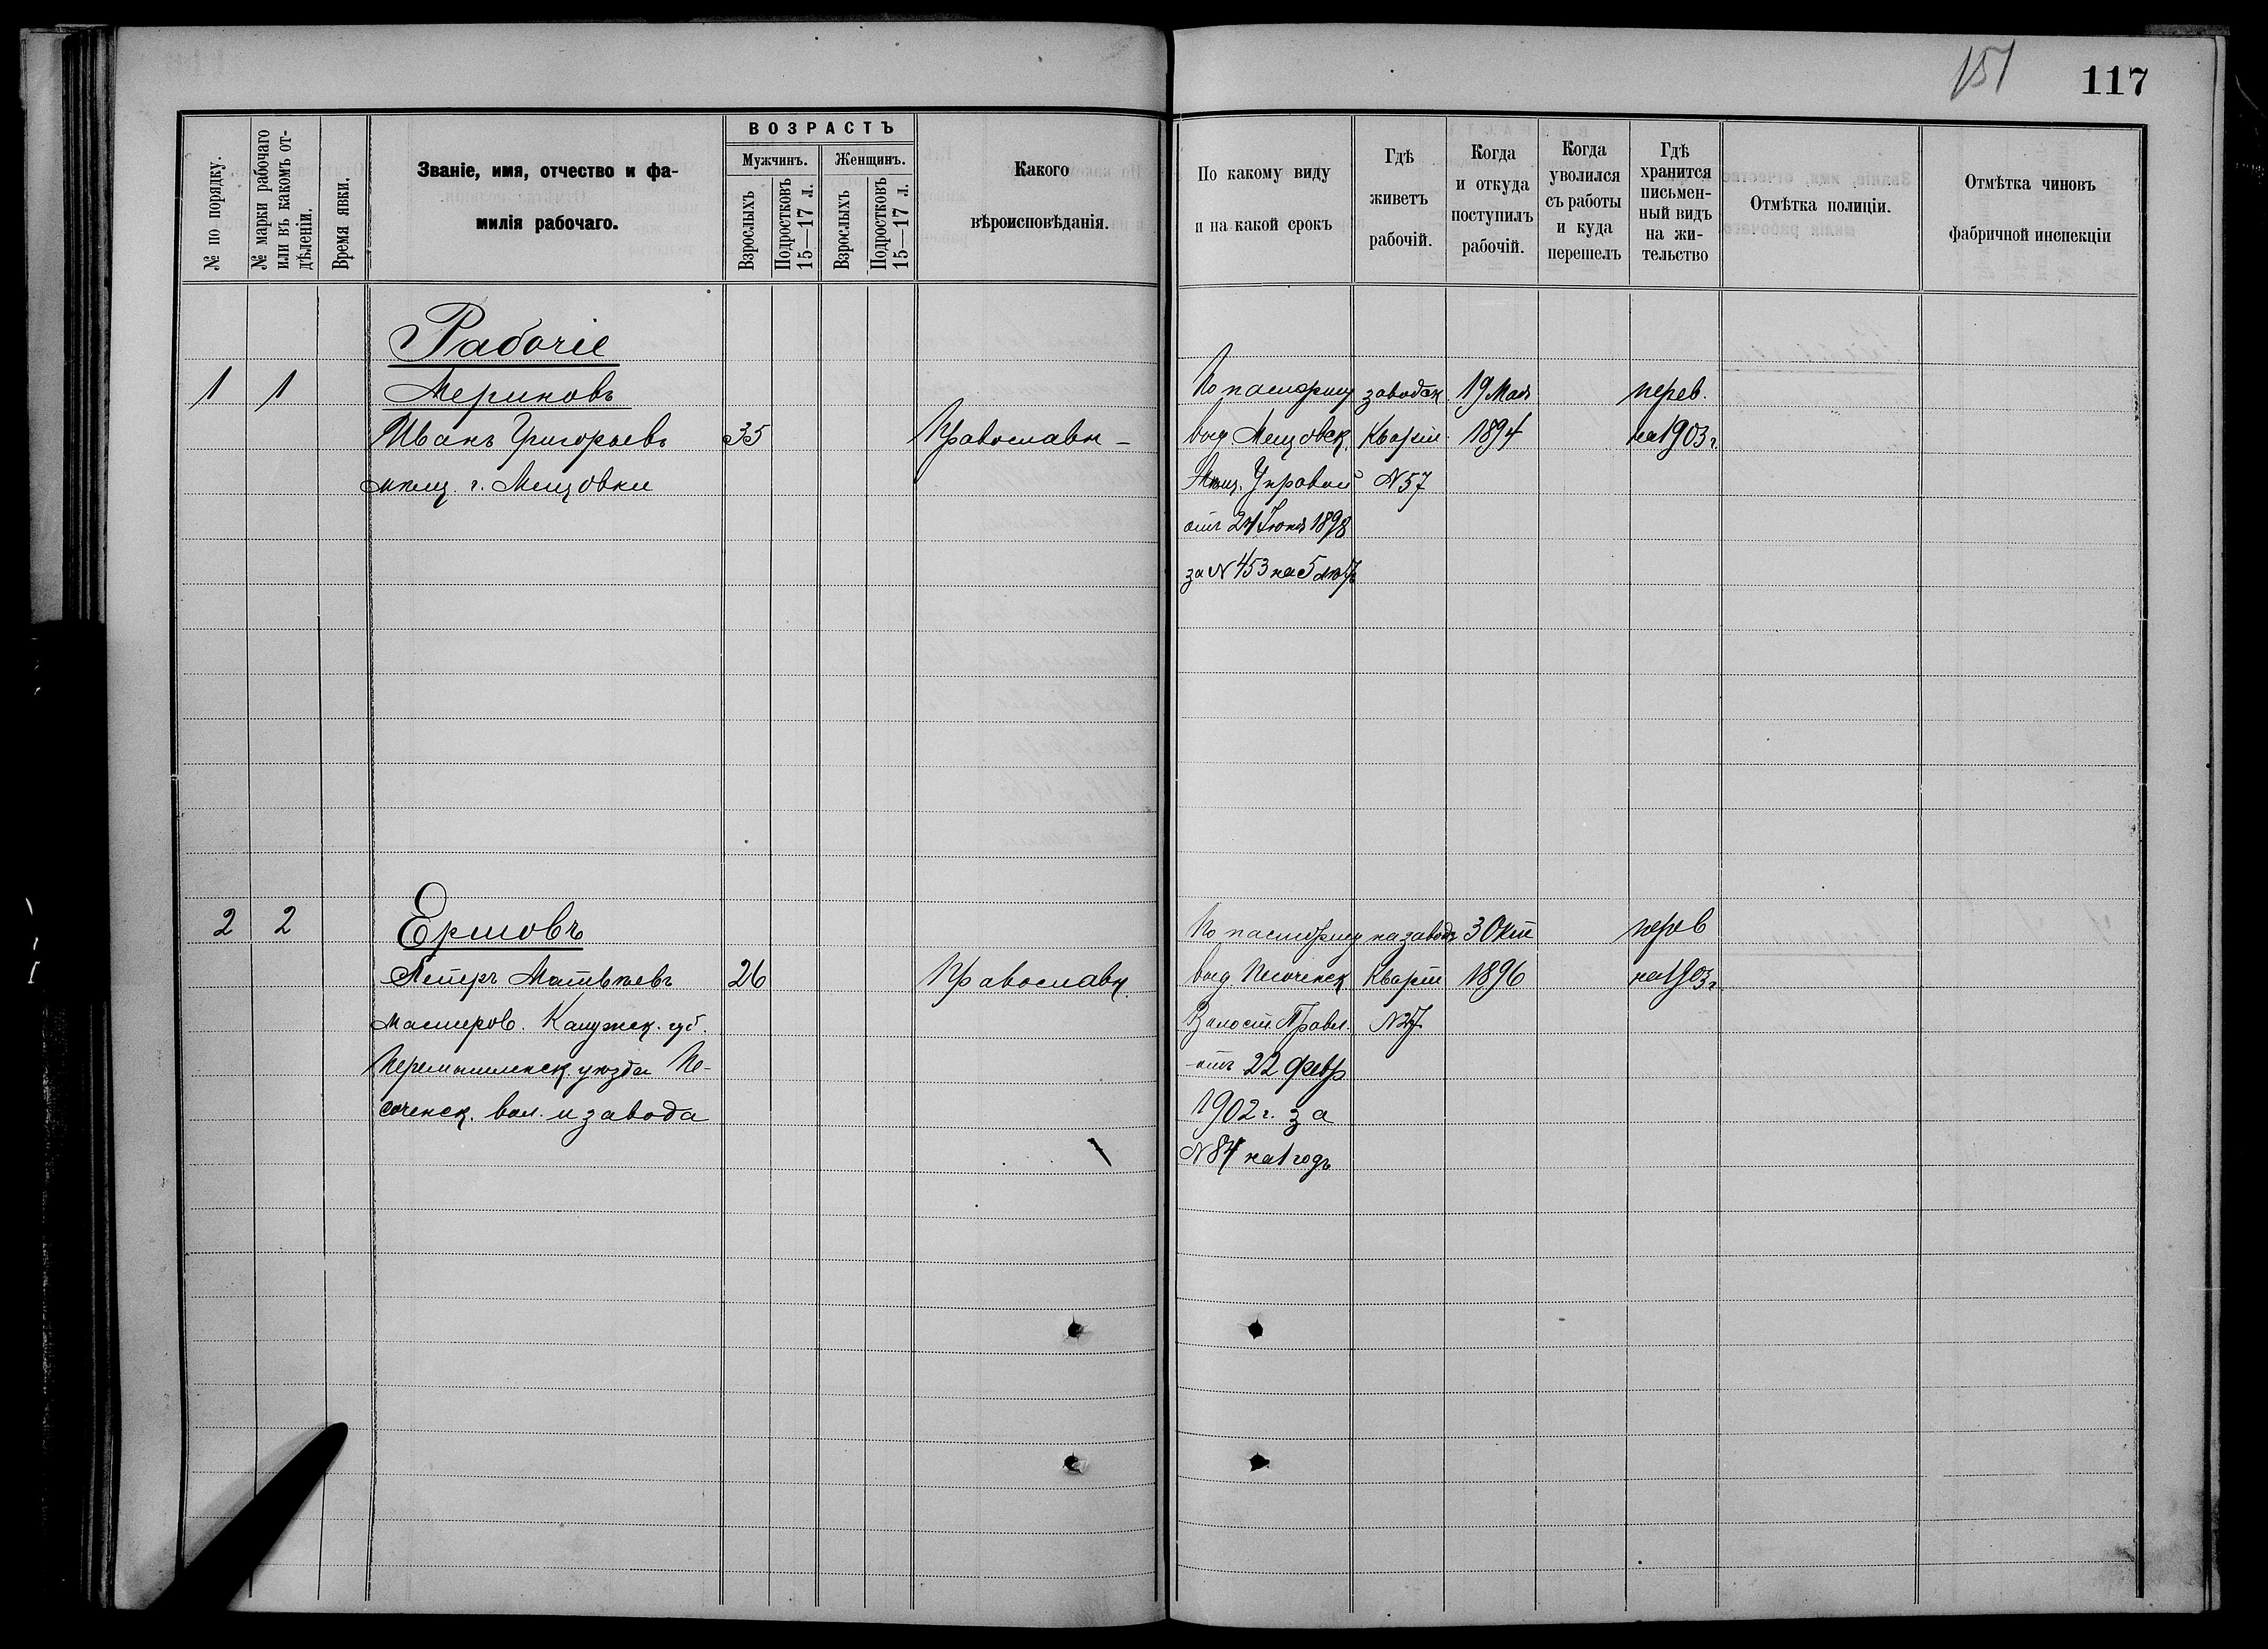 151
117
№ по порядку.
№ марки рабочаго или въ какомъ от-
дѣленіи.
Время явки.
Званіе, имя, отчество и фа-
милія рабочаго.
ВОЗРАСТЪ
Мужчинъ.
Женщинъ.
Взрослыхъ
Подростковъ 15—17 л.
Взрослыхъ
Подростковъ 15—17 л.
Какого
вѣроисповѣданія.
По какому виду
и на какой срокъ
Гдѣ
живетъ
рабочій.
Когда
и откуда
поступилъ
рабочій.
Когда
уволился
съ работы
и куда
перешелъ
Гдѣ
хранится
письмен-
ный видъ
на жи-
тельство
Отмѣтка полиціи.
Отмѣтка чиновъ
фабричной инспекціи
Рабочіе
1 1 Мериновъ По паспорту заводск. 19 Мая перев.
Иванъ Григорьевъ 35 Православн – выд. Мещовск. Кварт. 1894 на 1903 г.
мѣщ. г. Мещовки Мѣщ. Управой N 57
отъ 24 Іюня 1898
за N 453 на 5 лѣтъ
2 2 Ершовъ По паспорту на заводѣ 3 Окт перев
Петръ Матвѣевъ 26 Православн. выд. Песоченск Кварт 1896 на 1903 г
мастеров. Калужск. губ. Волост. Правл. N 27
Перемышленск. уѣзда Пе- отъ 22 Февр
соченск. вол. и завода 1902 г. за
N 84 на 1 годъ